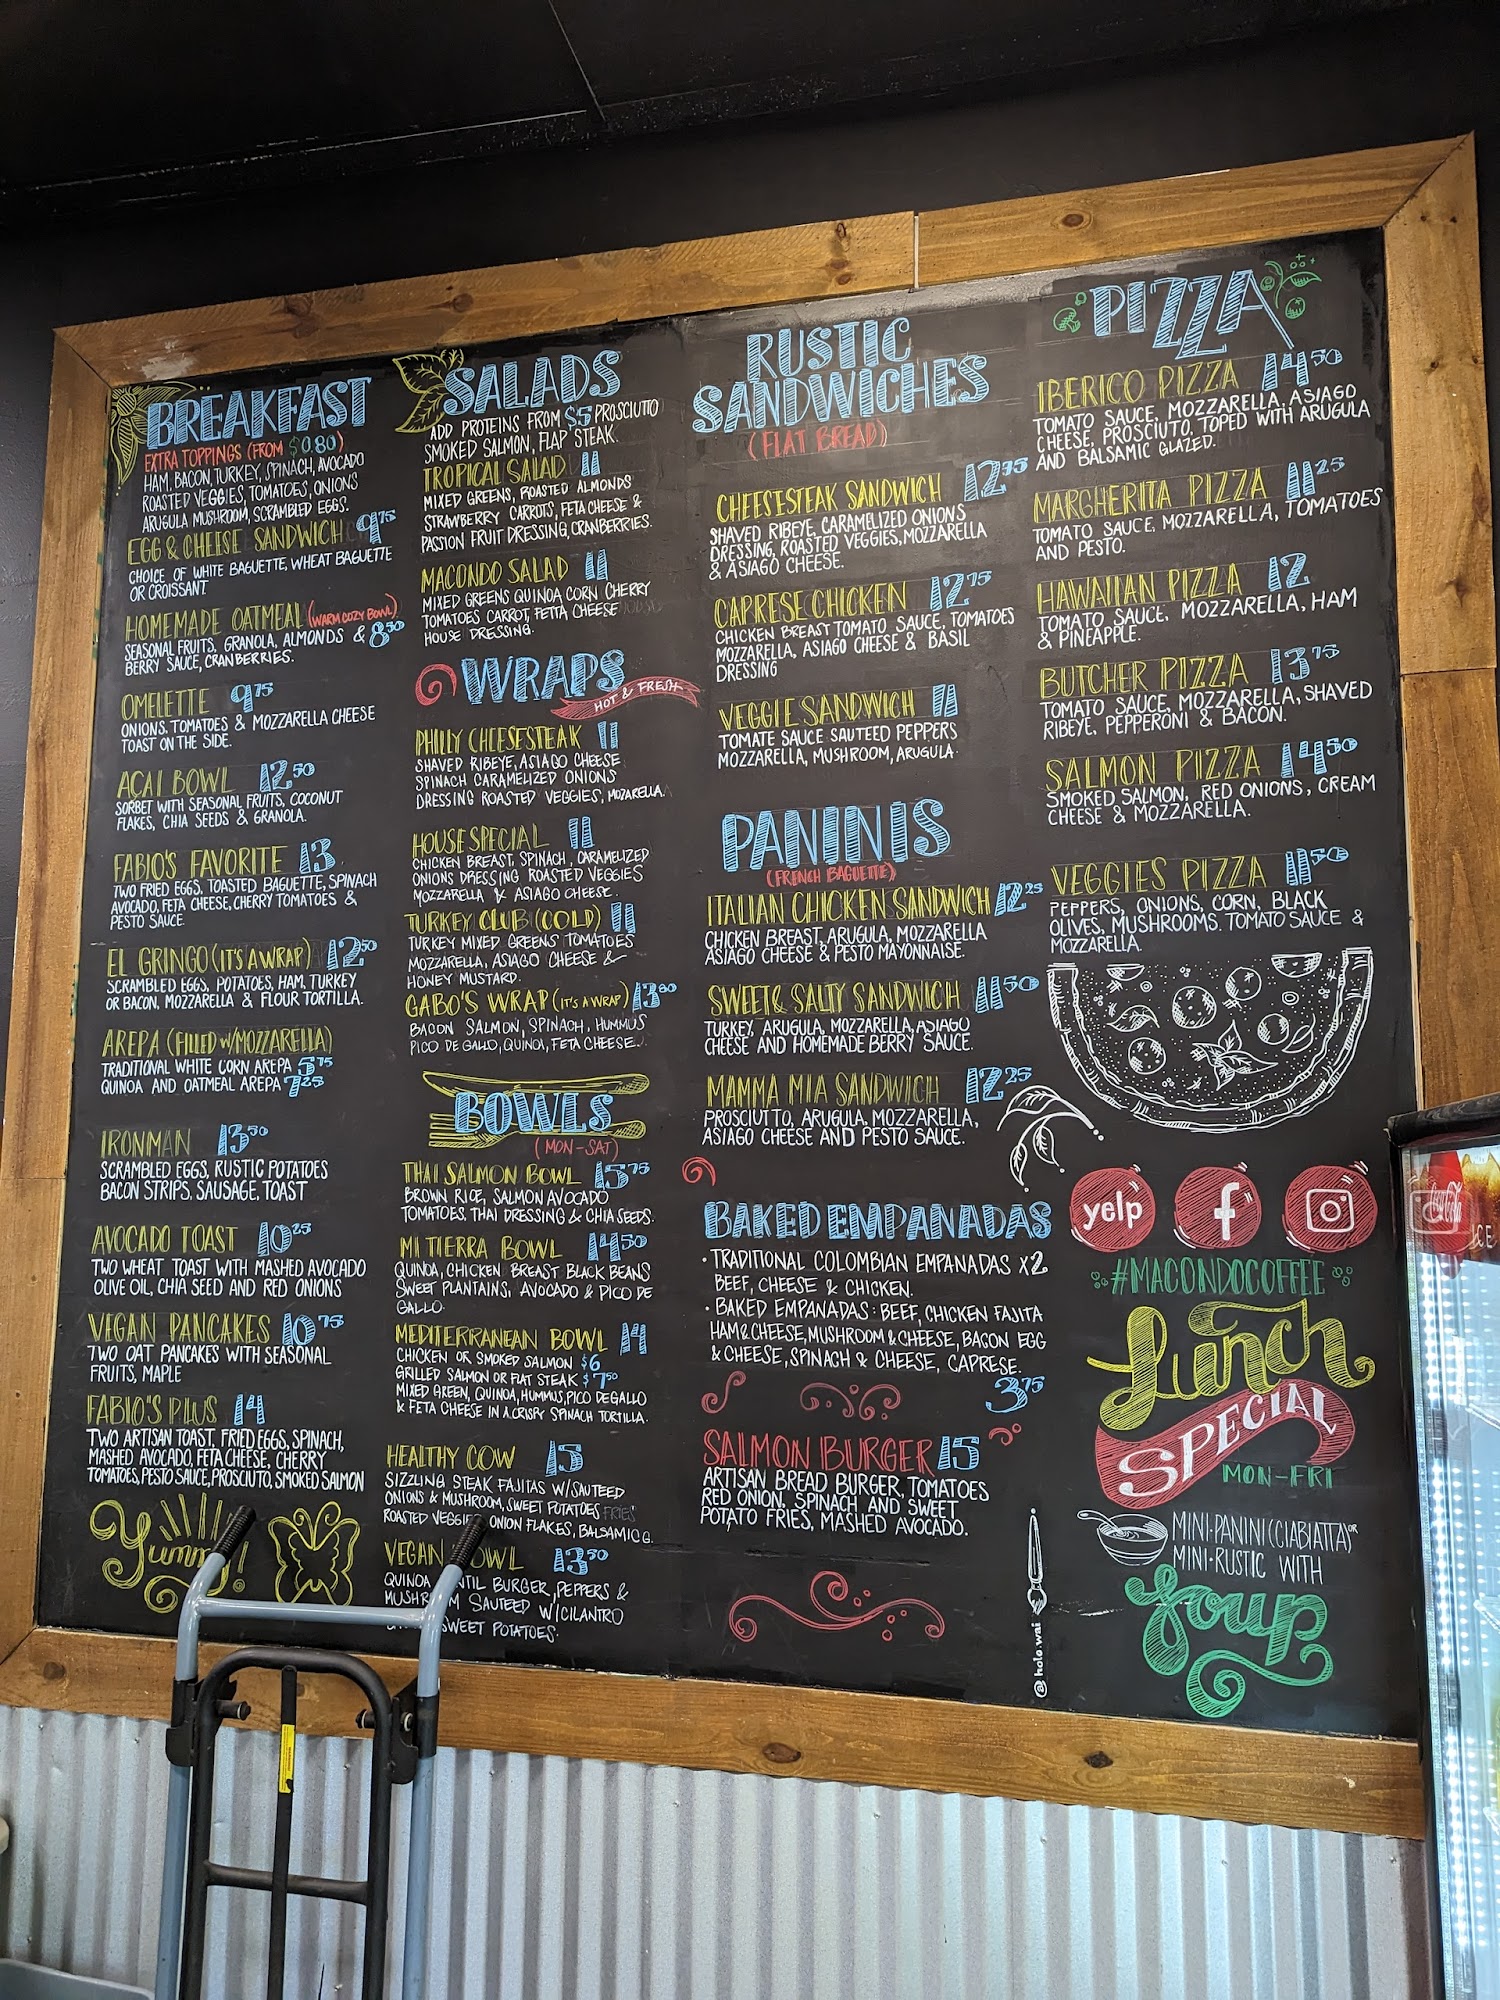 BREAKFAST
EXTRA TOPPINGS (FROM $0.80)
HAM, BACON, TURKEY, SPINACH, AVOCADO
ROASTED VEGGIES, TOMATOES, ONIONS
ARUGULA MUSHROOM, SCRAMBLED EGGS.
EGG & CHEESE SANDWICH 9.75
CHOICE OF WHITE BAGUETTE, WHEAT BAGUETTE
OR CROISSANT.
HOMEMADE OATMEAL (WARM COZY BOWL)
SEASONAL FRUITS, GRANOLA, ALMONDS & 8.50
BERRY SAUCE, CRANBERRIES.
OMELETTE 9.75
ONIONS, TOMATOES & MOZZARELLA CHEESE
TOAST ON THE SIDE.
AÇAI BOWL 12.50
SORBET WITH SEASONAL FRUITS, COCONUT
FLAKES, CHIA SEEDS & GRANOLA.
FABIO'S FAVORITE 13
TWO FRIED EGGS, TOASTED BAGUETTE, SPINACH
AVOCADO, FETA CHEESE, CHERRY TOMATOES &
PESTO SAUCE.
EL GRINGO (IT'S A WRAP) 12.50
SCRAMBLED EGGS, POTATOES, HAM, TURKEY
OR BACON, MOZZARELLA & FLOUR TORTILLA.
AREPA (FILLED W/MOZZARELLA)
TRADITIONAL WHITE CORN AREPA 5.75
QUINOA AND OATMEAL AREPA 7.25
IRONMAN 13.50
SCRAMBLED EGGS, RUSTIC POTATOES
BACON STRIPS, SAUSAGE, TOAST
AVOCADO TOAST 10.25
TWO WHEAT TOAST WITH MASHED AVOCADO
OLIVE OIL, CHIA SEED AND RED ONIONS
VEGAN PANCAKES 10.75
TWO OAT PANCAKES WITH SEASONAL
FRUITS, MAPLE
FABIO'S PLUS 14
TWO ARTISAN TOAST, FRIED EGGS, SPINACH,
MASHED AVOCADO, FETA CHEESE, CHERRY
TOMATOES, PESTO SAUCE, PROSCIUTO, SMOKED SALMON
Yummy!
SALADS
ADD PROTEINS FROM $5 PROSCIUTTO
SMOKED SALMON, FLAP STEAK.
TROPICAL SALAD 11
MIXED GREENS, ROASTED ALMONDS
STRAWBERRY CARROTS, FETA CHEESE &
PASSION FRUIT DRESSING, CRANBERRIES.
MACONDO SALAD 11
MIXED GREENS QUINOA CORN CHERRY
TOMATOES CARROT, FETTA CHEESE
HOUSE DRESSING.
WRAPS
HOT & FRESH
PHILLY CHEESESTEAK 11
SHAVED RIBEYE, ASIAGO CHEESE
SPINACH CARAMELIZED ONIONS
DRESSING ROASTED VEGGIES, MOZARELLA.
HOUSE SPECIAL 11
CHICKEN BREAST, SPINACH, CARAMELIZED
ONIONS DRESSING ROASTED VEGGIES
MOZZARELLA & ASIAGO CHEESE.
TURKEY CLUB (COLD) 11
TURKEY MIXED GREENS TOMATOES
MOZZARELLA, ASIAGO CHEESE &
HONEY MUSTARD.
GABO'S WRAP (IT'S A WRAP) 13.80
BACON SALMON, SPINACH, HUMMUS
PICO DE GALLO, QUINOA, FETA CHEESE.
BOWLS
(MON-SAT)
THAI SALMON BOWL 15.75
BROWN RICE, SALMON AVOCADO
TOMATOES, THAI DRESSING & CHIA SEEDS.
MI TIERRA BOWL 14.50
QUINOA, CHICKEN BREAST BLACK BEANS
SWEET PLANTAINS, AVOCADO & PICO DE
GALLO.
MEDITERRANEAN BOWL 14
CHICKEN OR SMOKED SALMON $6
GRILLED SALMON OR FLAT STEAK $7.50
MIXED GREEN, QUINOA, HUMMUS, PICO DE GALLO
& FETA CHEESE IN A CRISPY SPINACH TORTILLA.
HEALTHY COW 15
SIZZLING STEAK FAJITAS W/SAUTEED
ONIONS & MUSHROOM, SWEET POTATOES FRIES
ROASTED VEGGIES ONION FLAKES, BALSAMIC G.
VEGAN BOWL 13.50
QUINOA LENTIL BURGER, PEPPERS &
MUSHROOM SAUTEED W/CILANTRO
SWEET POTATOES.
RUSTIC
SANDWICHES
(FLAT BREAD)
CHEESESTEAK SANDWICH 12.75
SHAVED RIBEYE, CARAMELIZED ONIONS
DRESSING, ROASTED VEGGIES, MOZZARELLA
& ASIAGO CHEESE.
CAPRESE CHICKEN 12.75
CHICKEN BREAST TOMATO SAUCE, TOMATOES
MOZZARELLA, ASIAGO CHEESE & BASIL
DRESSING
VEGGIE SANDWICH 11
TOMATE SAUCE SAUTEED PEPPERS
MOZZARELLA, MUSHROOM, ARUGULA.
PANINIS
(FRENCH BAGUETTE)
ITALIAN CHICKEN SANDWICH 12.25
CHICKEN BREAST, ARUGULA, MOZZARELLA
ASIAGO CHEESE & PESTO MAYONNAISE.
SWEET & SALTY SANDWICH 11.50
TURKEY, ARUGULA, MOZZARELLA, ASIAGO
CHEESE AND HOMEMADE BERRY SAUCE.
MAMMA MIA SANDWICH 12.25
PROSCIUTTO, ARUGULA, MOZZARELLA,
ASIAGO CHEESE AND PESTO SAUCE.
BAKED EMPANADAS
• TRADITIONAL COLOMBIAN EMPANADAS X2
BEEF, CHEESE & CHICKEN.
• BAKED EMPANADAS: BEEF, CHICKEN FAJITA
HAM & CHEESE, MUSHROOM & CHEESE, BACON EGG
& CHEESE, SPINACH & CHEESE, CAPRESE.
3.75
SALMON BURGER 15
ARTISAN BREAD BURGER, TOMATOES
RED ONION, SPINACH AND SWEET
POTATO FRIES, MASHED AVOCADO.
@holo.wai
PIZZA
IBERICO PIZZA 14.50
TOMATO SAUCE, MOZZARELLA, ASIAGO
CHEESE, PROSCIUTO, TOPED WITH ARUGULA
AND BALSAMIC GLAZED.
MARGHERITA PIZZA 11.25
TOMATO SAUCE, MOZZARELLA, TOMATOES
AND PESTO.
HAWAIIAN PIZZA 12
TOMATO SAUCE, MOZZARELLA, HAM
& PINEAPPLE.
BUTCHER PIZZA 13.75
TOMATO SAUCE, MOZZARELLA, SHAVED
RIBEYE, PEPPERONI & BACON.
SALMON PIZZA 14.50
SMOKED SALMON, RED ONIONS, CREAM
CHEESE & MOZZARELLA.
VEGGIES PIZZA 11.50
PEPPERS, ONIONS, CORN, BLACK
OLIVES, MUSHROOMS, TOMATO SAUCE &
MOZZARELLA.
yelp f
#MACONDOCOFFEE
Lunch
SPECIAL
MON-FRI
MINI-PANINI (CIABIATTA) OR
MINI-RUSTIC WITH
Soup
Coca-Cola
ICE